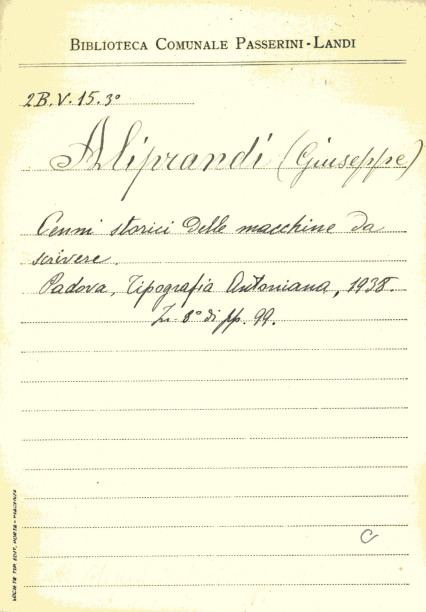 BIBLIOTECA COMUNALE PASSERINI-LANDI
2B.V.15.3º
Aliprandi (Giuseppe)
Cenni storici delle macchine da
scrivere.
Padova, Tipografia Antoniana, 1938.
In 8º di pp. 99.
C